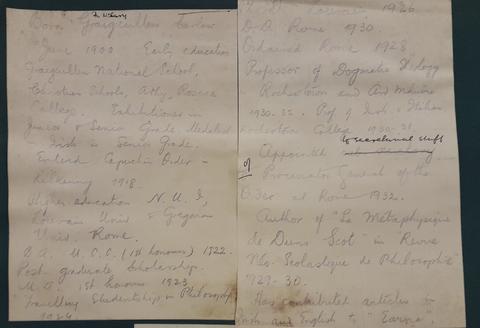 Born Graiguecullen Carlow
June 1900 Early education
Graiguecullen National School,
Christian Schools, Athy, Roscrea
College. Exhibitions in
Junior & Senior Grade Medalist
in Irish in Senior Grade.
Entered Capuchin Order -
Kilkenny 1918.
Higher education N.U.I,
Louvain Univ & Gregorian
Univ. Rome.
B.A. U.C.C (1st honours) 1922.
Post graduate Scholarship.
M.A. 1st honours 1923
Travelling Studentship in Philosophy
1926
D.D. Rome 1930
Ordained Rome 1928
Professor of Dogmatic Theology
Rochestown and Ard Mhuire
1930-32. Prof of Irish & Italian
Rochestown College 1930-31
to secretarial staff
Appointed
of Procurator General of the
Order at Rome 1932.
Author of "La Métaphysique
de Duns Scot" in Revue
Néo-Scolastique de Philosophie
1929-30.
Has contributed articles in
Irish and English to "Earna"